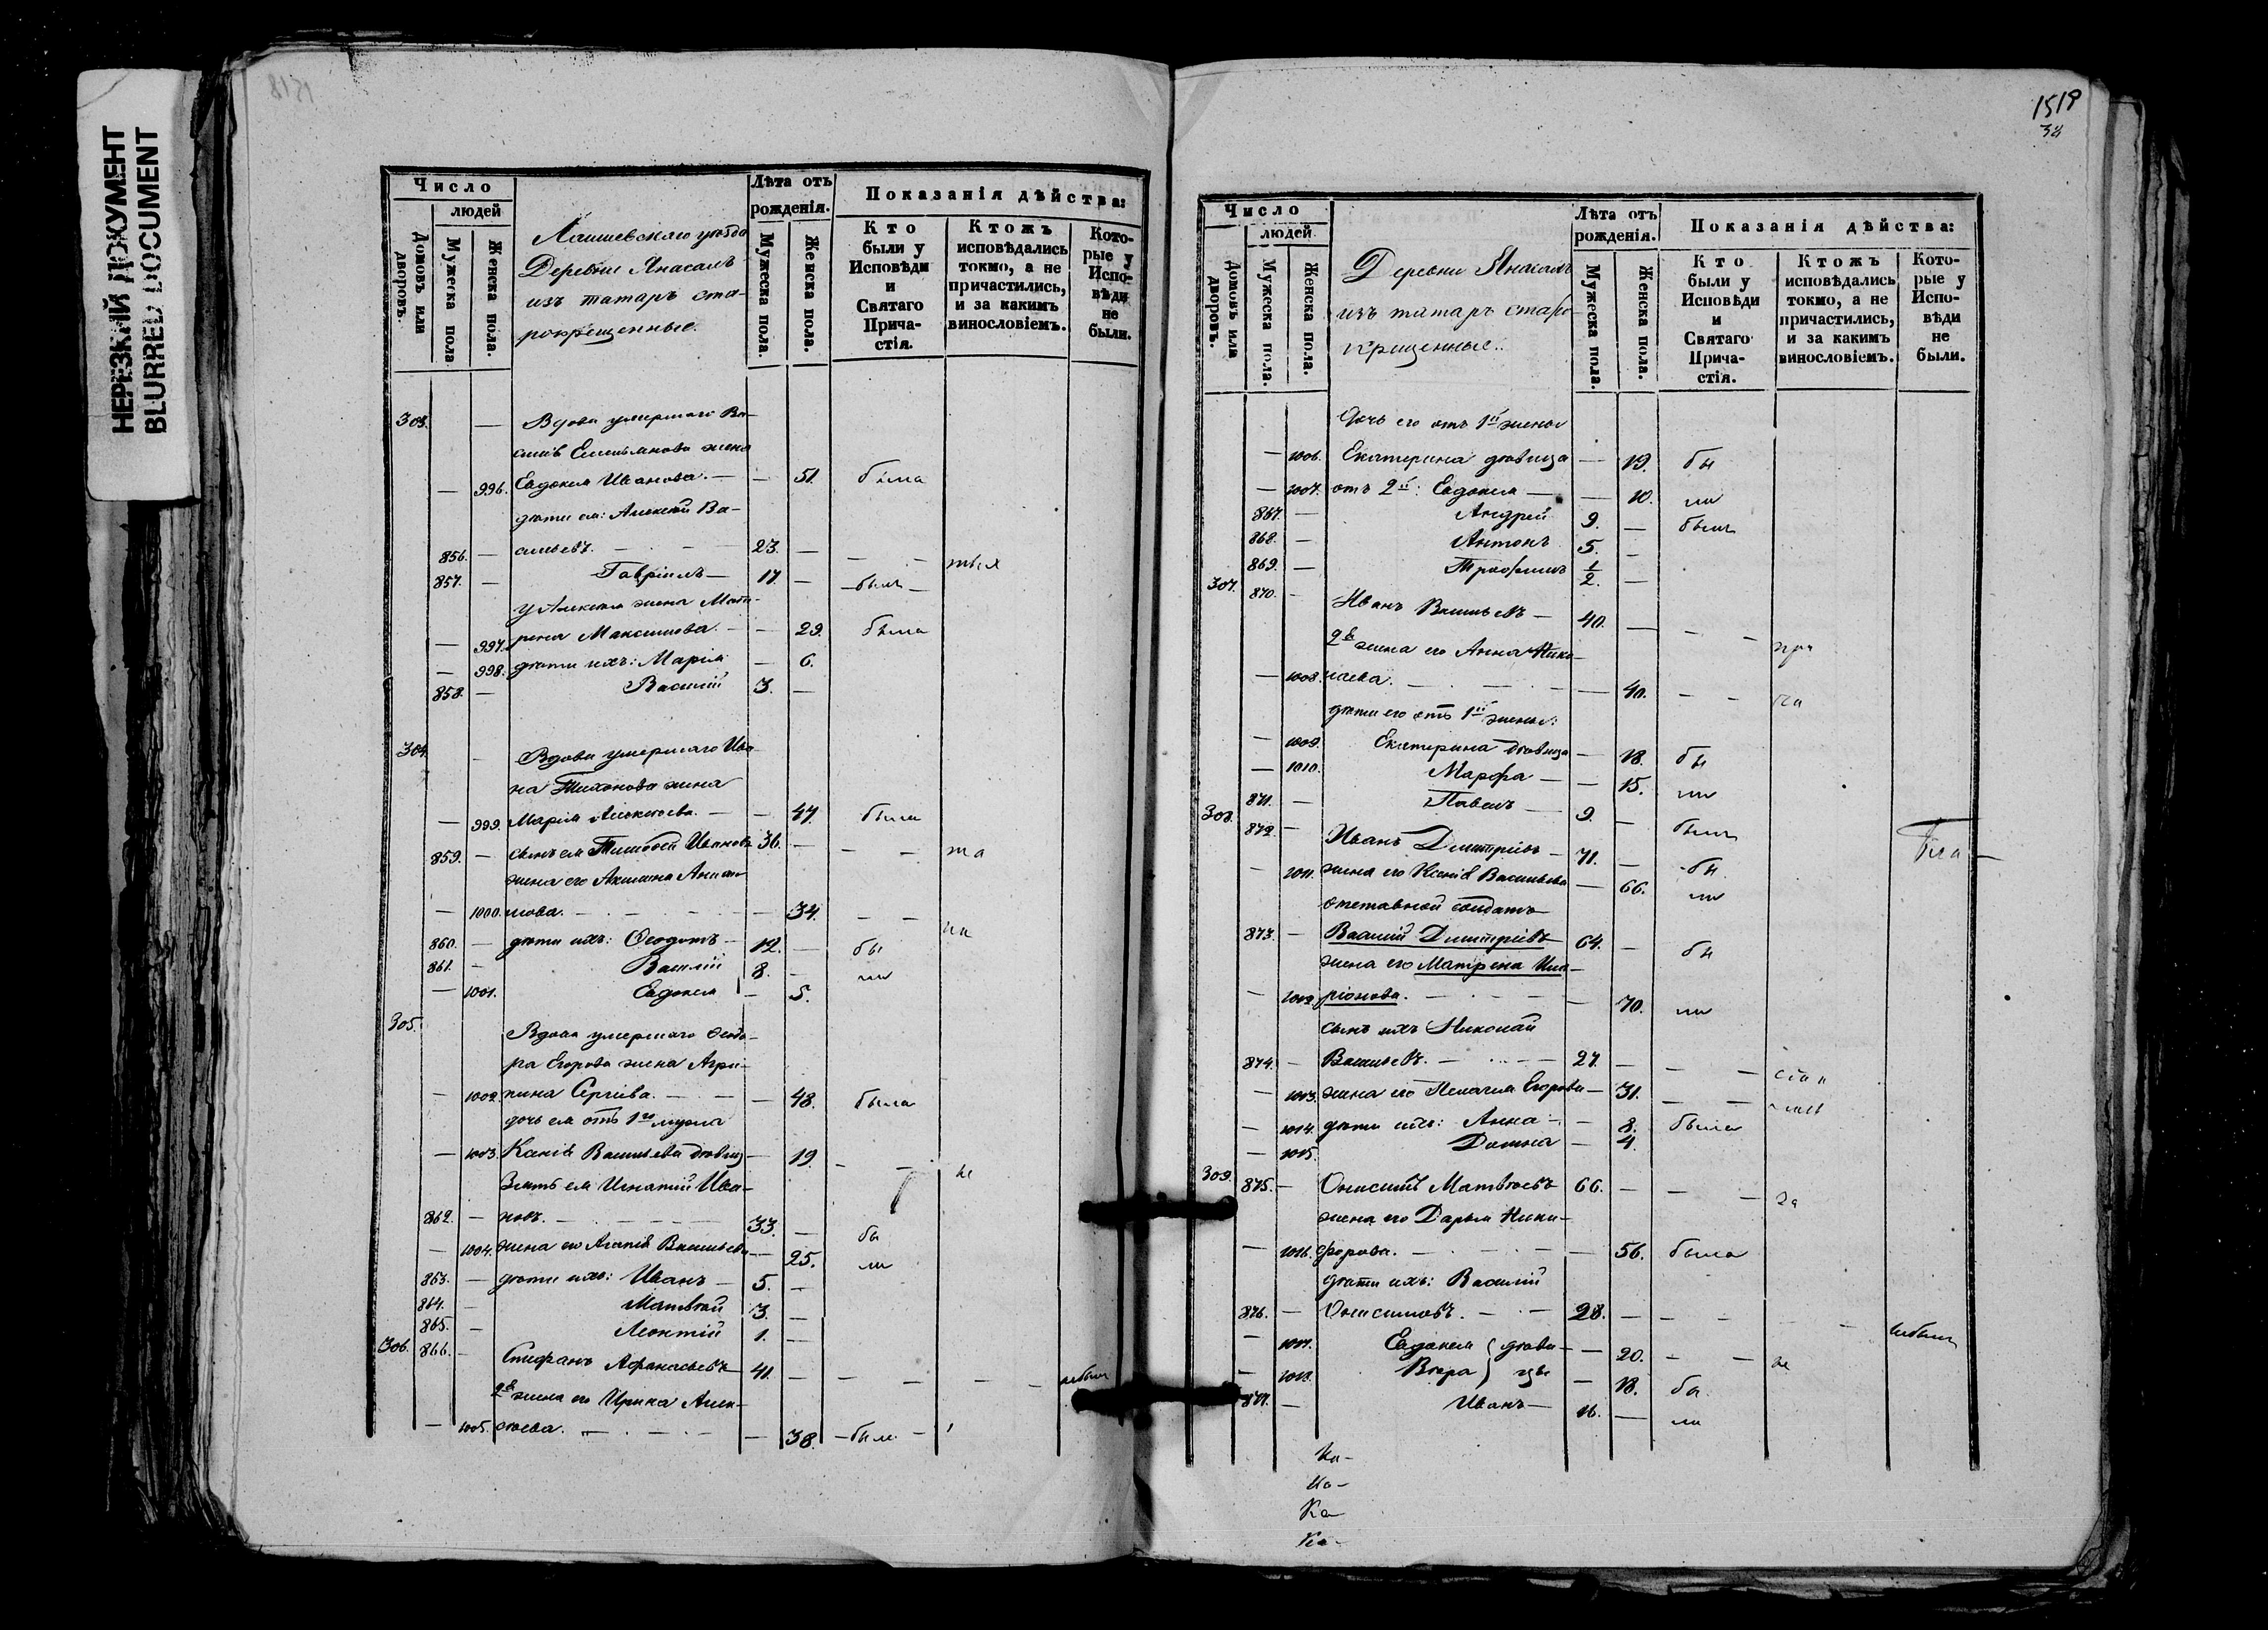 НЕРЕЗКИЙ ДОКУМЕНТ
BLURRED DOCUMENT
Число
людей
Домовъ или дворовъ.
Мужеска пола
Женска пола.
Лаишевскаго уѣзда
Деревни Янасалъ
изъ татаръ ста-
рокрещенные.
Лѣта отъ рожденія.
Мужеска пола.
Женска пола.
Показанія дѣйства:
Кто были у Исповѣди и Святаго Прича-стія.
Ктожъ исповѣдались токмо, а не причастились, и за какимъ винословіемъ.
Кото-рые у Испо-вѣди не были.
303. — Вдова умершаго Ва-
силія Емельянова жена
— 996. Евдокія Иванова. — — 51. была
дѣти ея: Алексѣй Ва-
856. — сильевъ. — 23. —
857. — Гавріилъ — 17. — былъ —
у Алексѣя жена Мат-
— 997. рена Максимова. — — 29. была
— 998. дѣти ихъ: Марія — 6.
858. — Василій 3. —
304. — Вдова умершаго Ива-
на Тихонова жена
— 999. Марія Алексѣева. — — 47. была
859. — сынъ ея Тимофей Ивановъ 36. —
жена его Акилина
— 1000. — 34. — —
860. — дѣти ихъ: Ѳедотъ — 12. — бы
861. — Василій 8. — ли
— 1001. Евдокія — 5.
305. Вдова умершаго Ѳедо-
ра Егорова жена Агри-
— 1002. пина Сергіева. — — 48. была
дочь ея отъ 1го мужа
— 1003. Ксенія Васильева дѣвица — 19. — —
Зять ея Игнатій Ива-
862. — новъ. — 33. — бы
— 1004. жена его Агапія Васильева — 25. ли
863. — дѣти ихъ: Иванъ — 5. —
864. — Матвѣй 3. —
865. — Леонтій 1. —
306. 866. — Стефанъ Афанасьевъ 41. — — — — небылъ
2я жена его Ирина Алек-
— 1005. сѣева. — — 38. — была —
1519
Число
людей
Домовъ или дворовъ.
Мужеска пола.
Женска пола.
Деревни Янасалъ
изъ татаръ старо-
крещенные.
Лѣта отъ рожденія.
Мужеска пола.
Женска пола.
Показанія дѣйства:
Кто были у Исповѣди и Святаго Прича-стія.
Ктожъ исповѣдались токмо, а не причастились, и за какимъ винословіемъ.
Кото-рые у Испо-вѣди не были.
Дочь его отъ 1й жены
— 1006. Екатерина дѣвица — 19. бы
— 1007. отъ 2й: Евдокія — — 10. ли
867. — Андрей 9. — былъ
868. — Антонъ 5. —
869. — Трофимъ 1/2. —
307. 870. — Иванъ Васильевъ — 40. — — —
2я жена его Анна Нико-
— 1008. лаева. — — 40. — —
дѣти его отъ 1й жены:
— 1009. Екатерина дѣвица — 18. бы
— 1010. Марфа — — 15. ли
871. — Павелъ — 9. — былъ
308. 872. — Иванъ Дмитріевъ — 71. — бы
— 1011. жена его Ксенія Васильева — 66. ли
отставной солдатъ
873. — Василій Дмитріевъ 64. — бы
жена его Матрена Ила-
— 1012. ріонова. — — 70. ли
сынъ ихъ Николай
874. — Васильевъ. — 27. — — —
— 1013. жена его Пелагея Егорова — 31. — —
— 1014. дѣти ихъ: Анна — — 8. была
— 1015. Домна — 4.
309. 875. — Онисимъ Матвѣевъ 66. — — —
жена его Дарья Ники-
— 1016. форова. — — 56. была
дѣти ихъ: Василій
876. — Онисимовъ. — 28. — — — — небылъ
— 1017. Евдокія дѣви- — 20. — —
— 1018. Вѣра цы — 18. бы
877. — Иванъ — 16. — ли
Ка-
Ка-